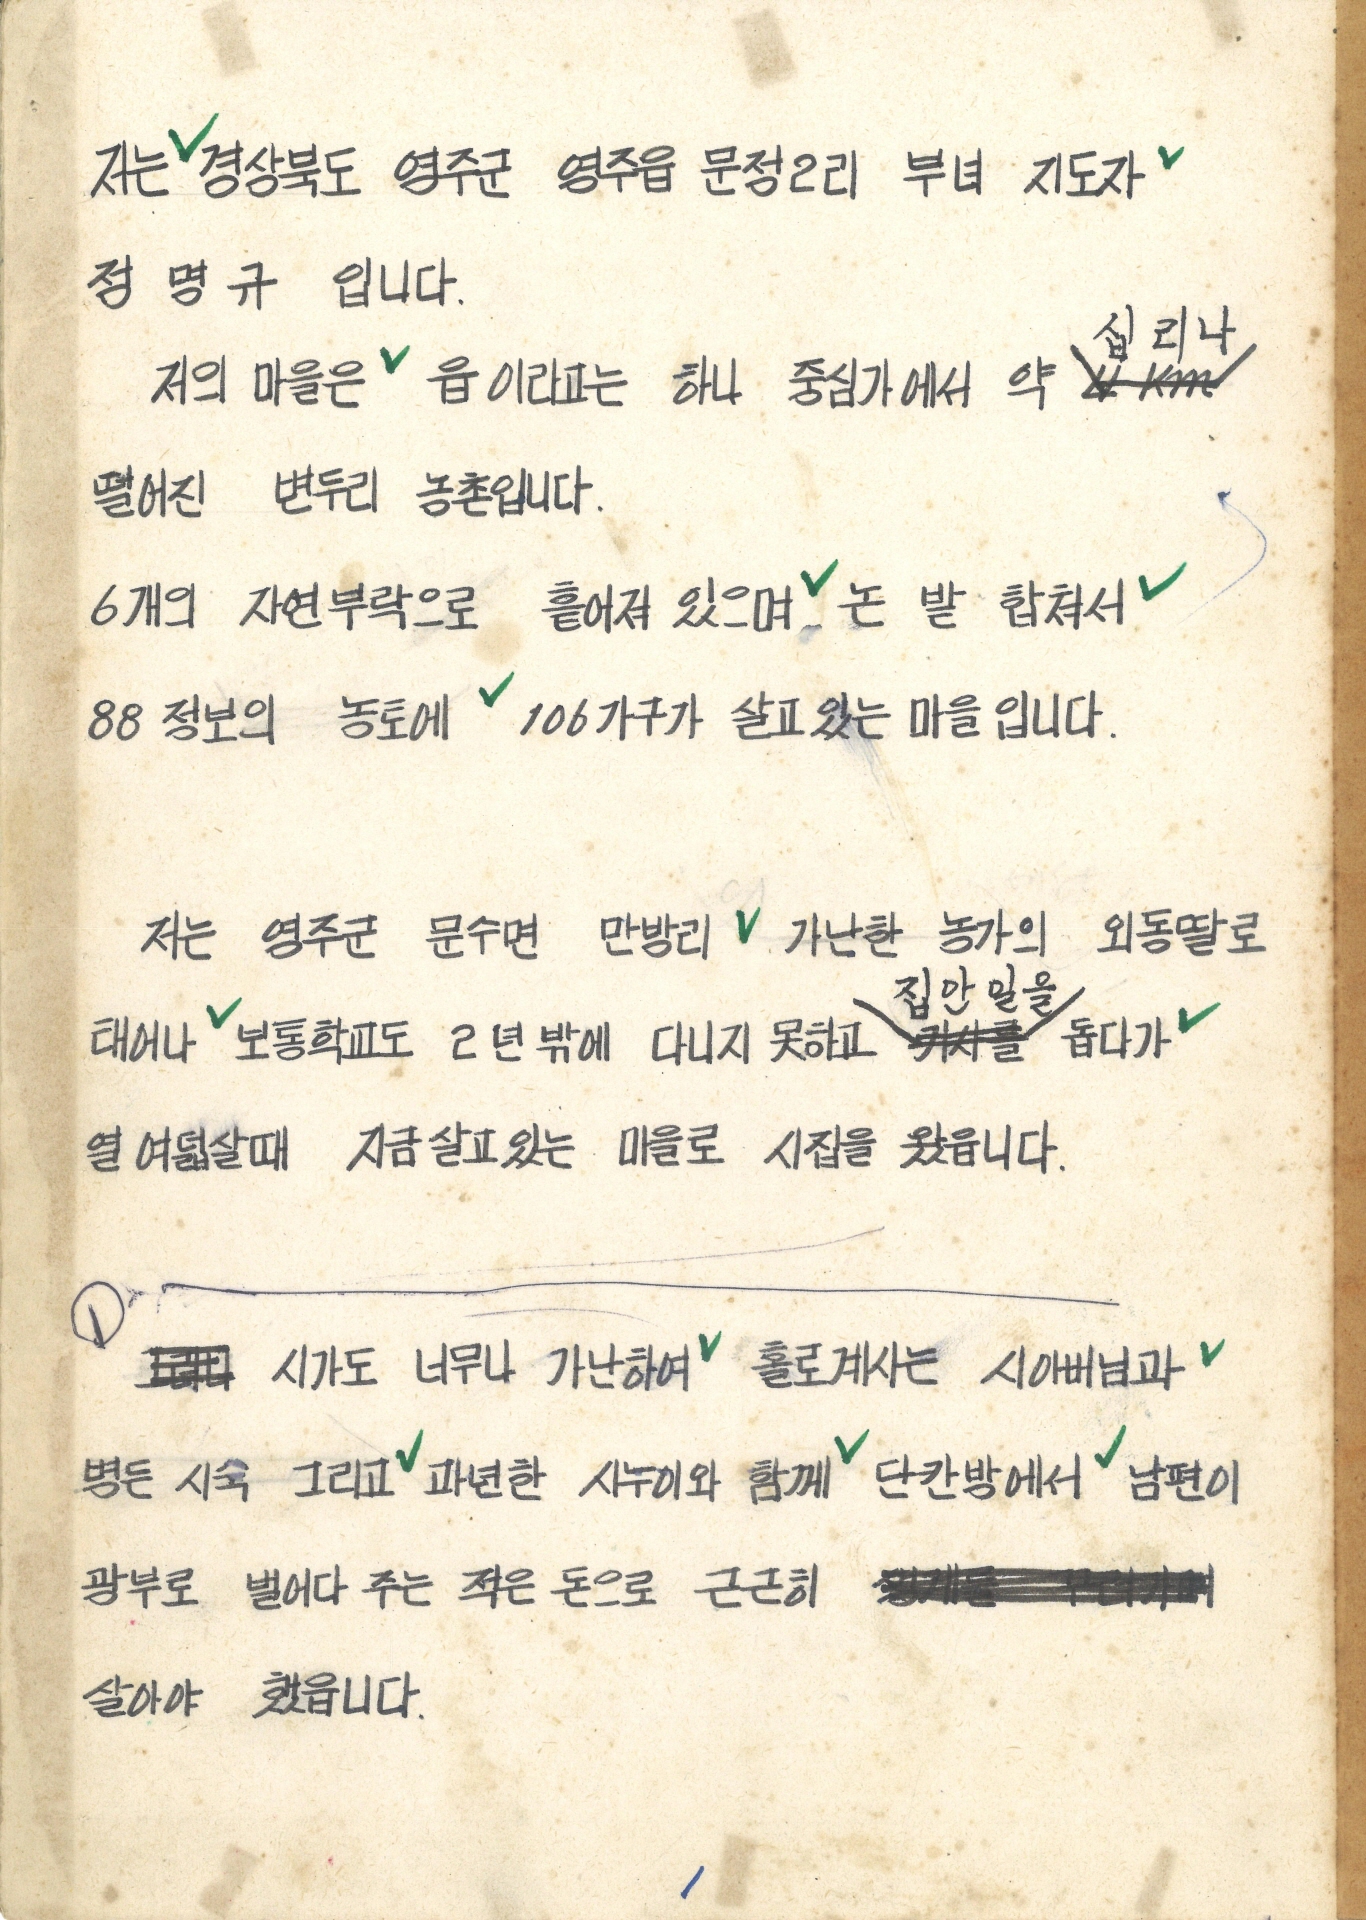 저는 경상북도 영주군 영주읍 문정2리 부녀 지도자
정 명 규 입니다.
십 리나
저의 마을은 읍이라고는 하나 중심가에서 약 4 Km
떨어진 변두리 농촌입니다.
6개의 자연부락으로 흩어져 있으며 논 밭 합쳐서
88 정보의 농토에 106가구가 살고있는 마을입니다.
저는 영주군 문수면 만방리 가난한 농가의 외동딸로
집안 일을
태어나 보통학교도 2년 밖에 다니지 못하고 가사를 돕다가
열 여덟살때 지금살고있는 마을로 시집을 왔읍니다.
1
시가도 너무나 가난하여 홀로계시는 시아버님과
병든 시숙 그리고 과년한 시누이와 함께 단칸방에서 남편이
광부로 벌어다 주는 적은 돈으로 근근히
살아야 했읍니다.
1